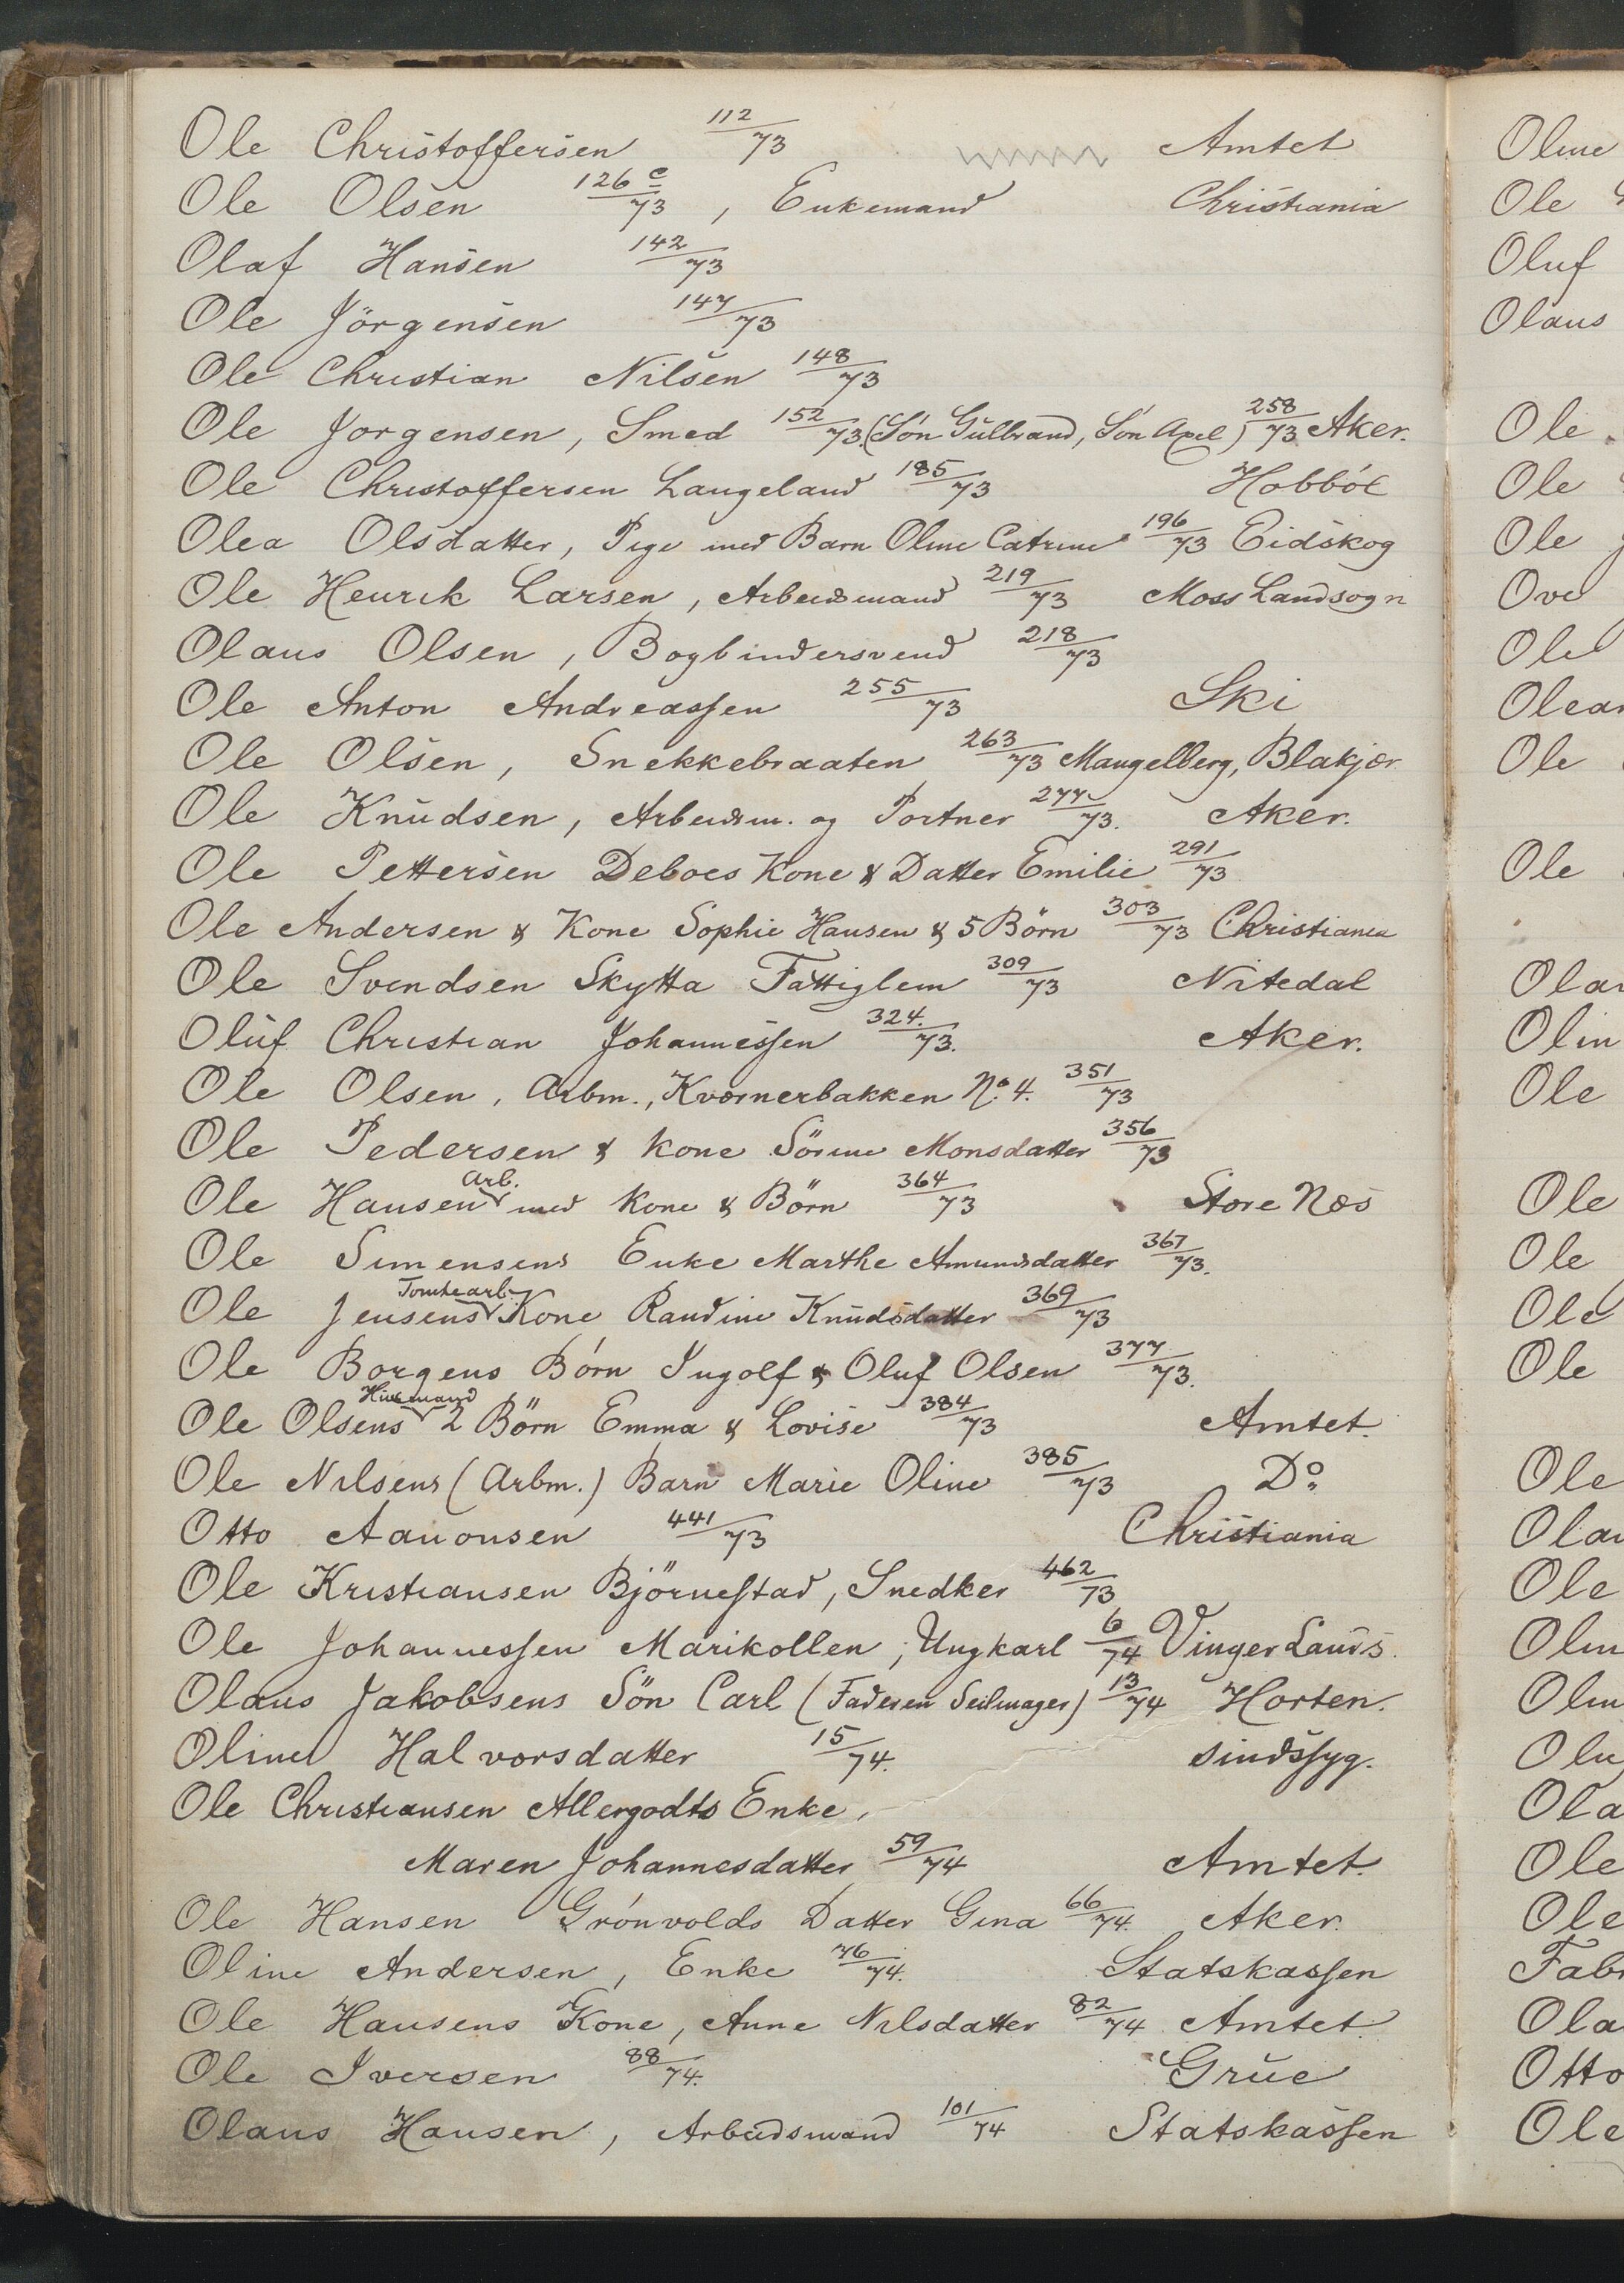 Ole Christoffersen 112/73 Amtet
Ole Olsen 126 c/73, Enkemand Christiania
Olaf Hansen 142/73
Ole Jörgensen 147/73
Ole Christian Nilsen 148/73
Ole Jorgensen, Smed 152/73 (Sön Gulbrand, Sön Axel) 258/73 Aker.
Ole Christoffersen Langeland 185/73 Hobböl
Olea Olsdatter, Pige med Barn Oline Catrine 196/73 Eidskog
Ole Henrik Larsen, Arbeidsmand 219/73 Moss Landsogn
Olaus Olsen, Bogbindersvend 218/73
Ole Anton Andreassen 255/73 Ski
Ole Olsen, Snekkebraaten 263/73 Mangelberg, Blakjær
Ole Knudsen, Arbeidsm. og Portner 277/73. Aker.
Ole Pettersen Deboes Kone & Datter Emilie 291/73
Ole Andersen & Kone Sophie Hansen & 5 Börn 303/73 Christiania
Ole Svendsen Skytta Fattiglem 309/73 Nitedal
Oluf Christian Johannessen 324./73. Aker.
Ole Olsen, Arbm., Kværnerbakken No. 4. 351/73
Ole Pedersen & kone Sörine Monsdatter 356/73
Ole Hansen Arb. med kone & Börn 364/73 Store Næs
Ole Simensens Enke Marthe Amundsdatter 367/73.
Ole Jensens Tomtearb. Kone Randine Knudsdatter 369/73
Ole Borgens Börn Ingolf & Oluf Olsen 377/73.
Ole Olsens Husmand 2 Börn Emma & Lovise 384/73 Amtet.
Ole Nilsens (Arbm.) Barn Marie Oline 385/73 Do
Otto Aanonsen 441/73 Christiania
Ole Kristiansen Björnestad, Snedker 462/73
Ole Johannessen Marikollen, Ungkarl 6/74 Vinger Lands.
Olaus Jakobsens Sön Carl (Faderen Seilmager) 13/74 Horten.
Oline Halvorsdatter 15/74. sindssyg.
Ole Christiansen Allergodts Enke,
Maren Johannesdatter 59/74 Amtet.
Ole Hansen Grönvolds Datter Gina 66/74. Aker.
Oline Andersen, Enke 76/74. Statskassen
Ole Hansens Kone, Anne Nilsdatter 82/74 Amtet
Ole Iversen 88/74. Grue
Olaus Hansen, Arbeidsmand 101/74 Statskassen
Oline
Ole
Oluf
Olaus
Ole
Ole
Ole
Ove
Ole
Olean
Ole
Ole
Olin
Ole
Ole
Ole
Ole
Ole
Ole
Ole
Ole
Ole
Otto
Ole